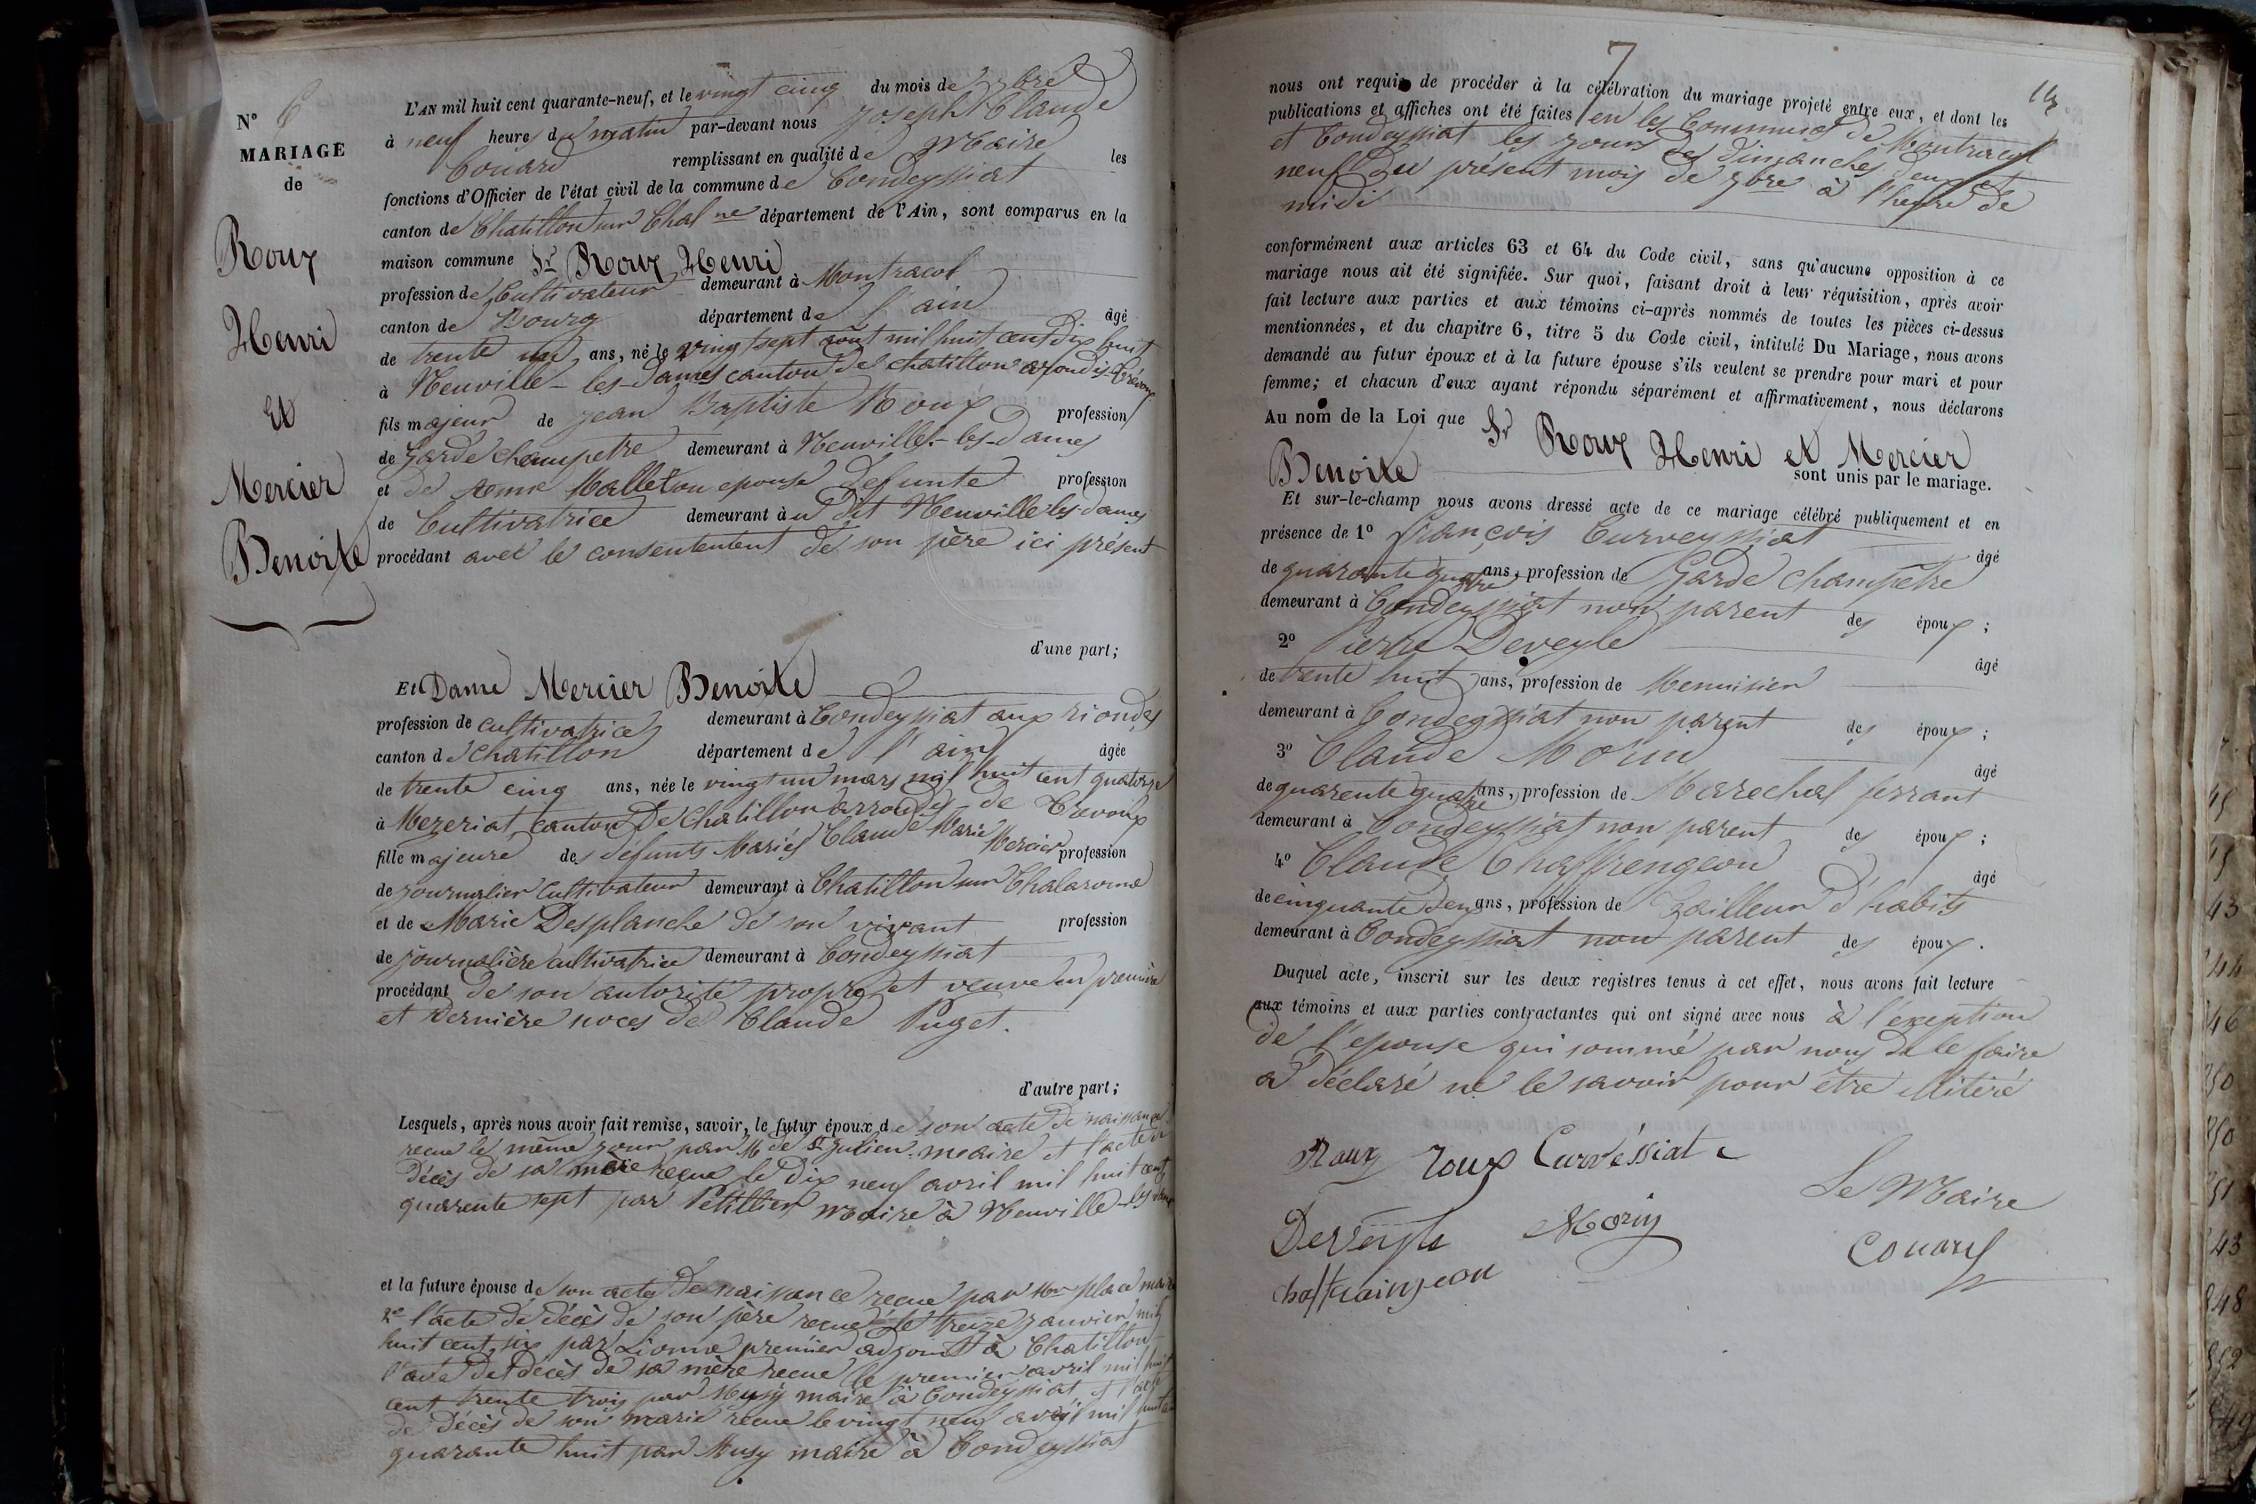 N° 6
MARIAGE
de
Roux
Henri
Et
Mercier
Benoite
L'AN mil huit cent quarante-neuf, et le vingt cinq du mois de 7bre
à neuf heures du matin par-devant nous Joseph Claude
Couard remplissant en qualité de Maire les
fonctions d'Officier de l'état civil de la commune de Condeyssiat
canton de Chatillon sur Chal ne département de l'Ain, sont comparus en la
maison commune Sr Roux Henri
profession de Cultivateur demeurant à Montracol
canton de Bourg département de l'ain âgé
de trente un ans, né le vingt sept août mil huit cent dix huit
à Neuville-les-dames canton de chatillon arrondis Trévoux
fils majeur de jean Baptiste Roux profession
de Garde champetre demeurant à Neuville-les-dames
et de Malleton epouse defunte profession
de Cultivatrice demeurant au dit Neuville les dames
procédant avec le consentement de son père ici présent
d'une part;
Et Dame Mercier Benoite
profession de cultivatrice demeurant à Condeyssiat aux riondes
canton de Chatillon département de l'ain âgée
de trente cinq ans, née le vingt un mars mil huit cent quatorze
à Mezeriat canton De Chatillon arrondis - de Trevoux
fille majeure des défunts Mariés Claude Marie Mercier profession
de journalier Cultivateur demeurant à Chatillon sur Chalaronne
et de Marie Desplanche de son vivant profession
de journalière cultivatrice demeurant à Condeyssiat
procédant de son autorité propre et veuve en première
et dernière noces de Claude Puget.
d'autre part;
Lesquels, après nous avoir fait remise, savoir, le futur époux de son acte de naissance
recue le même jour par M de St Julien maire et l'acte de
Décès de sa mère recue le dix neuf avril mil huit cent
quarente sept par Petillier maire à Neuville-les-dames
et la future épouse de son acte de naissance recue par Mr place maire
2e l'acte de décès de son père recue le treize janvier mil
huit cent six par Lionne premier adjoint à Chatillon
l'acte de décès de sa mère recue le premier avril mil huit
cent trente trois par Musy maire à Condeyssiat et l'acte
de Décès de son marie recue le vingt neuf avril mil huit cent
quarante huit par Musy maire à Condeyssiat
7
14
nous ont requis de procéder à la célébration du mariage projeté entre eux, et dont les
publications et affiches ont été faites en les Communes de Montracol
et Condeyssiat les jours des dimanches deux et
neuf du présent mois de 7bre à l'heure de
midi
conformément aux articles 63 et 64 du Code civil, sans qu'aucune opposition à ce
mariage nous ait été signifiée. Sur quoi, faisant droit à leur réquisition, après avoir
fait lecture aux parties et aux témoins ci-après nommés de toutes les pièces ci-dessus
mentionnées, et du chapitre 6, titre 5 du Code civil, intitulé Du Mariage, nous avons
demandé au futur époux et à la future épouse s'ils veulent se prendre pour mari et pour
femme; et chacun d'eux ayant répondu séparément et affirmativement, nous déclarons
Au nom de la Loi que Sr Roux Henri et Mercier
Benoite sont unis par le mariage.
Et sur-le-champ nous avons dressé acte de ce mariage célébré publiquement et en
présence de 1° françois Curveyssiat âgé
de quarante quatre ans, profession de Garde champêtre
demeurant à Condeyssiat non parent des époux;
2° Pierre Deveyle âgé
de trente huit ans, profession de Menuisier
demeurant à Condeyssiat non parent des époux;
3° Claude Morin âgé
de quarente quatre ans, profession de Marechal ferrant
demeurant à Condeyssiat non parent des époux;
4° Claude Chaffrengeon âgé
de cinquante deux ans, profession de Tailleur d'habits
demeurant à Condeyssiat non parent des époux.
Duquel acte, inscrit sur les deux registres tenus à cet effet, nous avons fait lecture
aux témoins et aux parties contractantes qui ont signé avec nous à l'exeption
de l'epouse qui sommé par nous de le faire
a déclaré ne le savoir pour être illitéré
Roux roux Curvéssiat
Le Maire
Deveyle Morin
Couard
chaffrainjeon